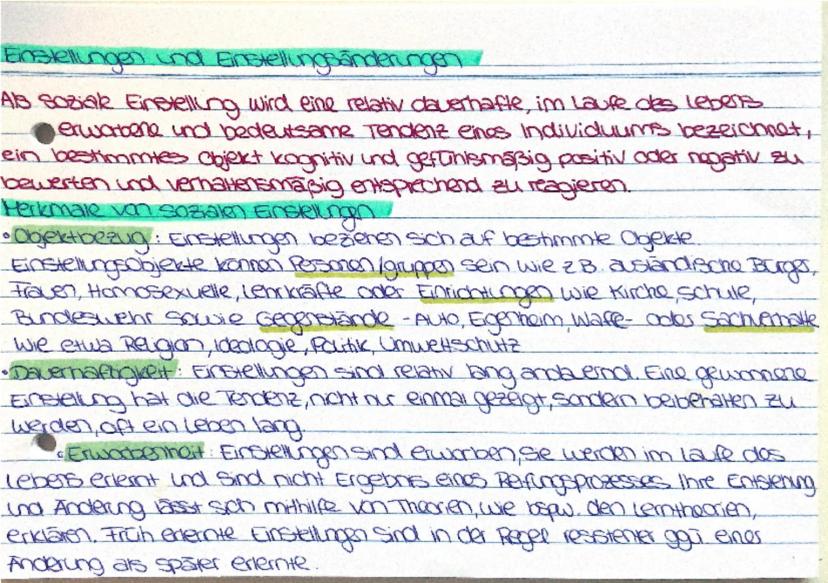 Einstellungen und Einstellungsänderungen
Als soziale Einstellung wird eine relativ dauerhafte, im Laufe des Lebens
erworbene und bedeutsame Tendenz eines Individuums bezeichnet,
ein bestimmtes Objekt kognitiv und gefühlsmäßig positiv oder negativ zu
bewerten und verhaltensmäßig entsprechend zu reagieren.
Merkmale von sozialen Einstellungen
• Objektbezug: Einstellungen beziehen sich auf bestimmte Objekte.
Einstellungsobjekte können Personen/gruppen sein wie z.B. ausländische Bürger,
Frauen, Homosexuelle, Lehrkräfte oder Einrichtungen wie Kirche, Schule,
Bundeswehr sowie Gegenstände -Auto, Eigenheim, Waffe- oder Sachverhalte
wie etwa Religion, Ideologie, Politik, Umweltschutz
• Dauerhaftigkeit: Einstellungen sind relativ lang andauernd. Eine gewonnene
Einstellung hat die Tendenz, nicht nur einmal gezeigt, sondern beibehalten zu
werden, oft ein Leben lang.
• Erworbenheit: Einstellungen sind erworben, sie werden im Laufe des
Lebens erlernt und sind nicht Ergebnis eines Reifungsprozesses. Ihre Entstehung
und Änderung lässt sich mithilfe von Theorien, wie bspw. den Lerntheorien,
erklären. Früh erlernte Einstellungen sind in der Regel resistener ggü. einer
Änderung als später erlernte.